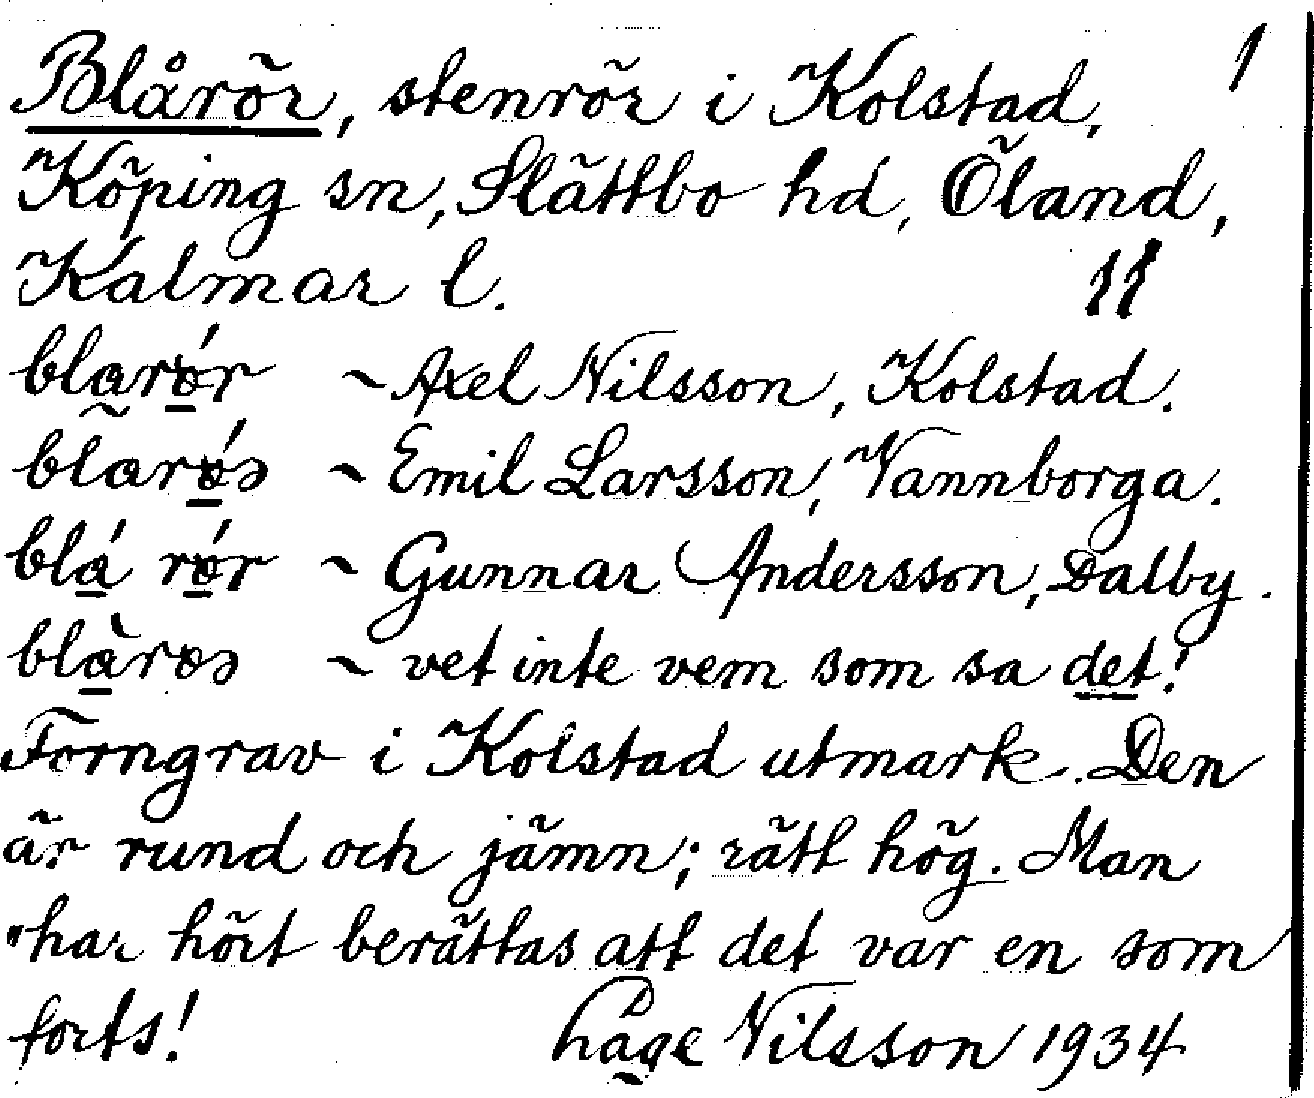 Blårör, stenrör i Kolstad, 1
Köping sn, Slättbo hd, Öland,
Kalmar l. 11
blarör ~ Axel Nilsson, Kolstad.
~ Emil Larsson, Vannborga.
blá rör ~ Gunnar Andersson, Dalby.
~ vet inte vem som sa det!
Forngrav i Kolstad utmark. Den
är rund och jämn; rätt hög. Man
"har hört berättas att det var en som
forts! Håge Nilsson 1934